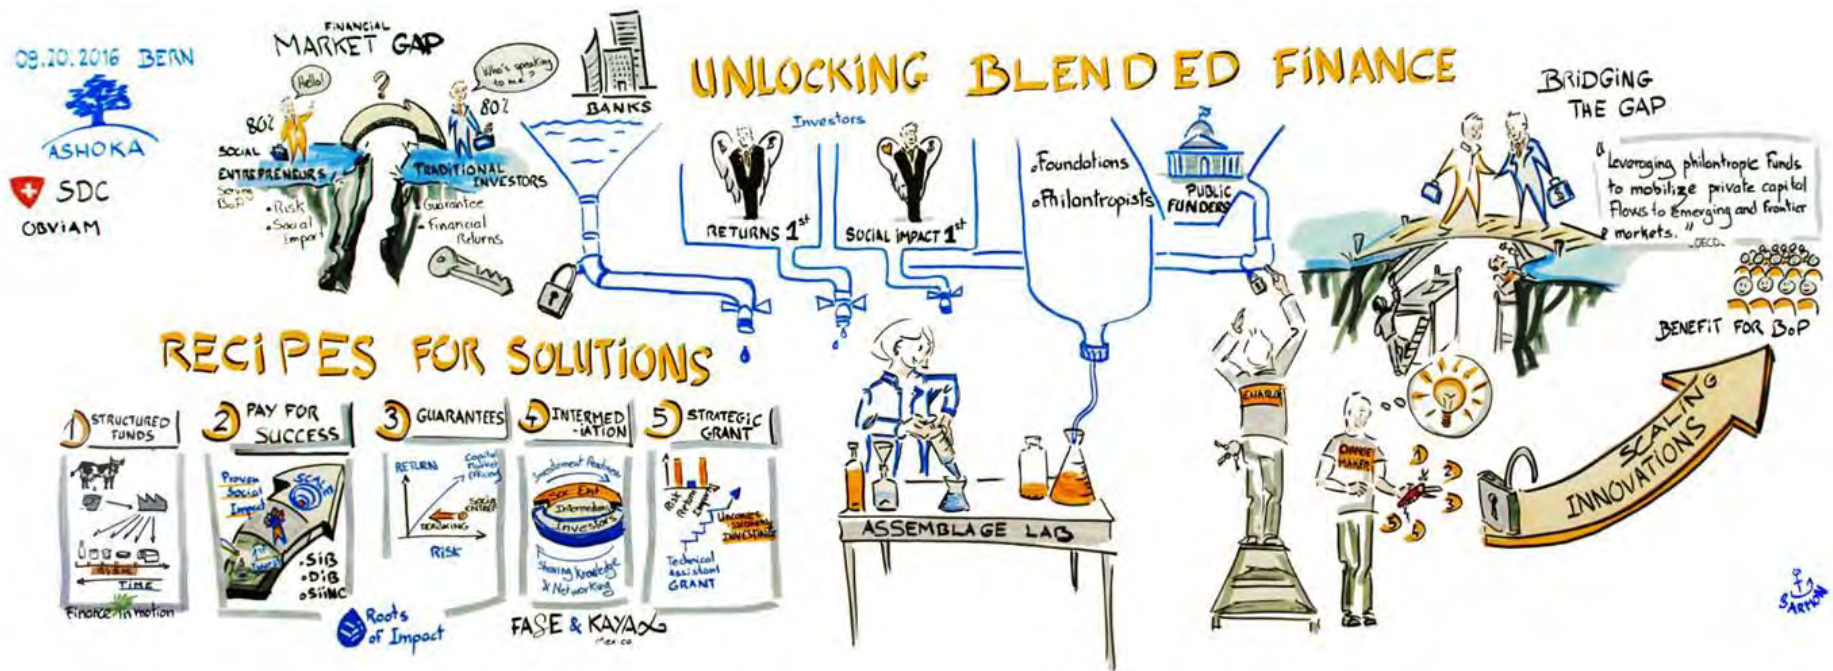 09.20.2016 BERN
ASHOKA
SDC
OBViAM
FINANCIAL
MARKET GAP
Hello!
?
Who's speaking
to me?
80%
80%
SOCIAL
ENTREPRENEURS
Serving
BoP
• Risk
• Social
Import
TRADITIONAL
INVESTORS
• Guarantee
• Financial
Returns
BANKS
UNLOCKiNG BLENDED FiNANCE
Investors
$ $
$
RETURNS 1st
SOCIAL iMPACT 1st
• Foundations
• Philantropists
PUBLIC
FUNDERS
BRiDGiNG
THE GAP
"Leveraging philantropic Funds
to mobilize private capital
Flows to Emerging and Frontier
markets."
OECD
$
BENEFIT FOR BoP
RECiPES FOR SOLUTiONS
1 STRUCTURED
FUNDS
TIME
Finance in motion
2 PAY FOR
SUCCESS
Proven
Social
Impact
• SiB
• DiB
• SiiNC
3 GUARANTEES
RETURN
Capital
Market
Efficiency
SOCIAL
ENTREP.
DERISKING
RiSK
4 INTERMED
-IATION
Investment Readiness
Soc Ent
Intermediary
Investors
Sharing Knowledge
& Networking
5 STRATEGIC
GRANT
Risk
Return
Impact
INVESTING
Technical
Assistant
GRANT
Roots
of Impact
FASE & KAYAX
Mexico
ASSEMBLAGE LAB
ENABLER
CHANGE
MAKER
1
2
3
4
5
SCALING
INNOVATIONS